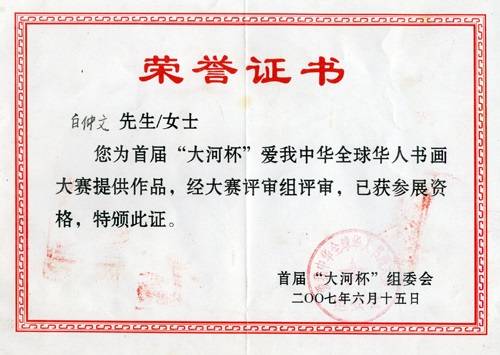 荣誉证书
白仲文 先生/女士
您为首届“大河杯”爱我中华全球华人书画
大赛提供作品，经大赛评审组评审，已获参展资
格，特颁此证。
首届“大河杯”组委会
二〇〇七年六月十五日